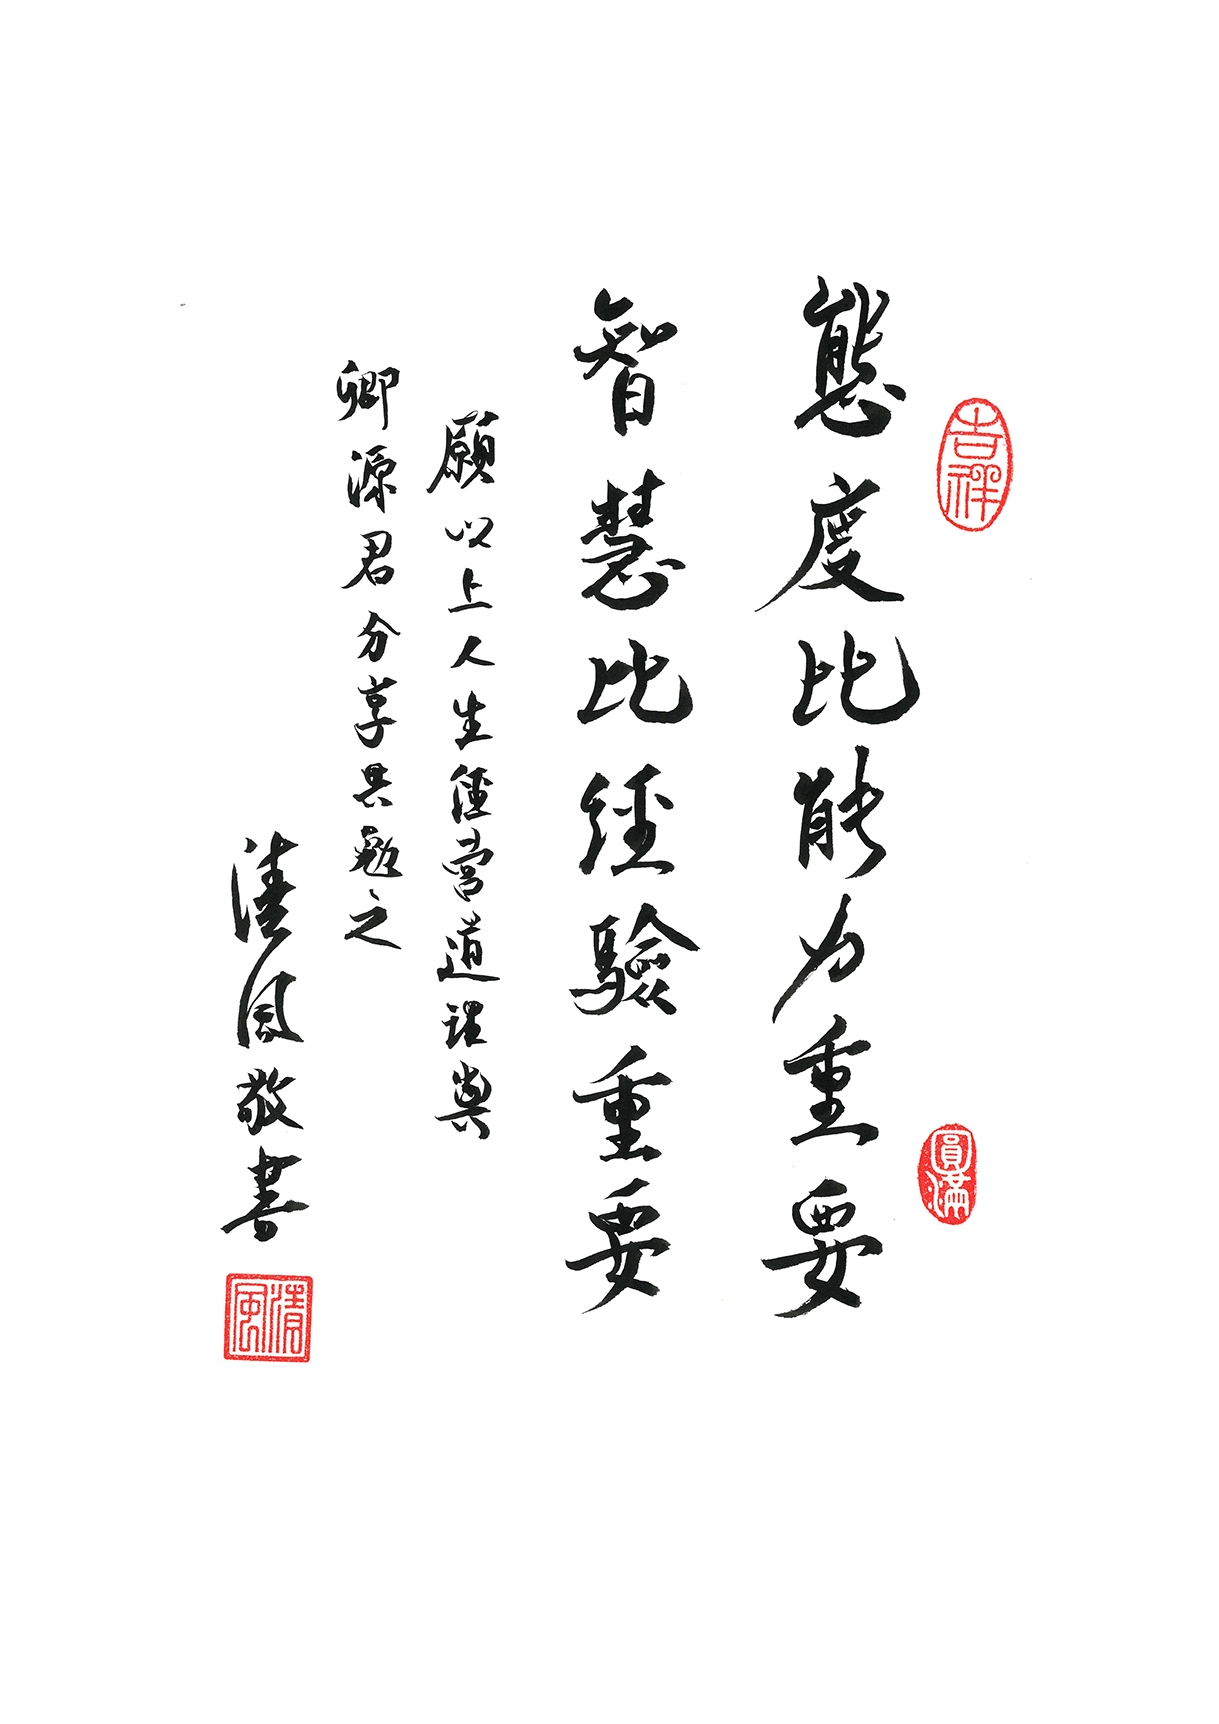 吉祥
態度比能力重要
圓滿
智慧比經驗重要
願以上人生經營道理與
卿源君分享共勉之
清風敬書
清風